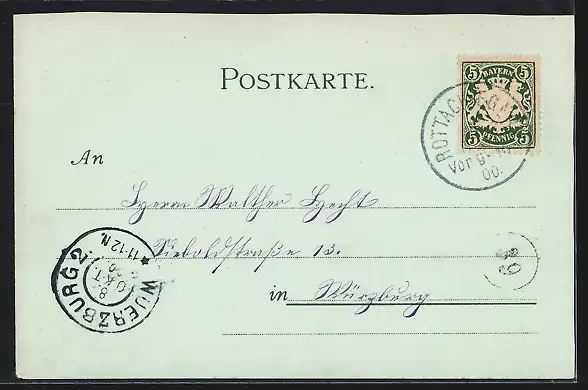 POSTKARTE.
5 BAYERN 5
5 PFENNIG 5
ROTTACH
Vorg.
00.
An
Herrn Walther Hecht
Sieboldstraße 13.
in Würzburg
WUERZBURG 2.
8.
OKT.
11-12 N.
63